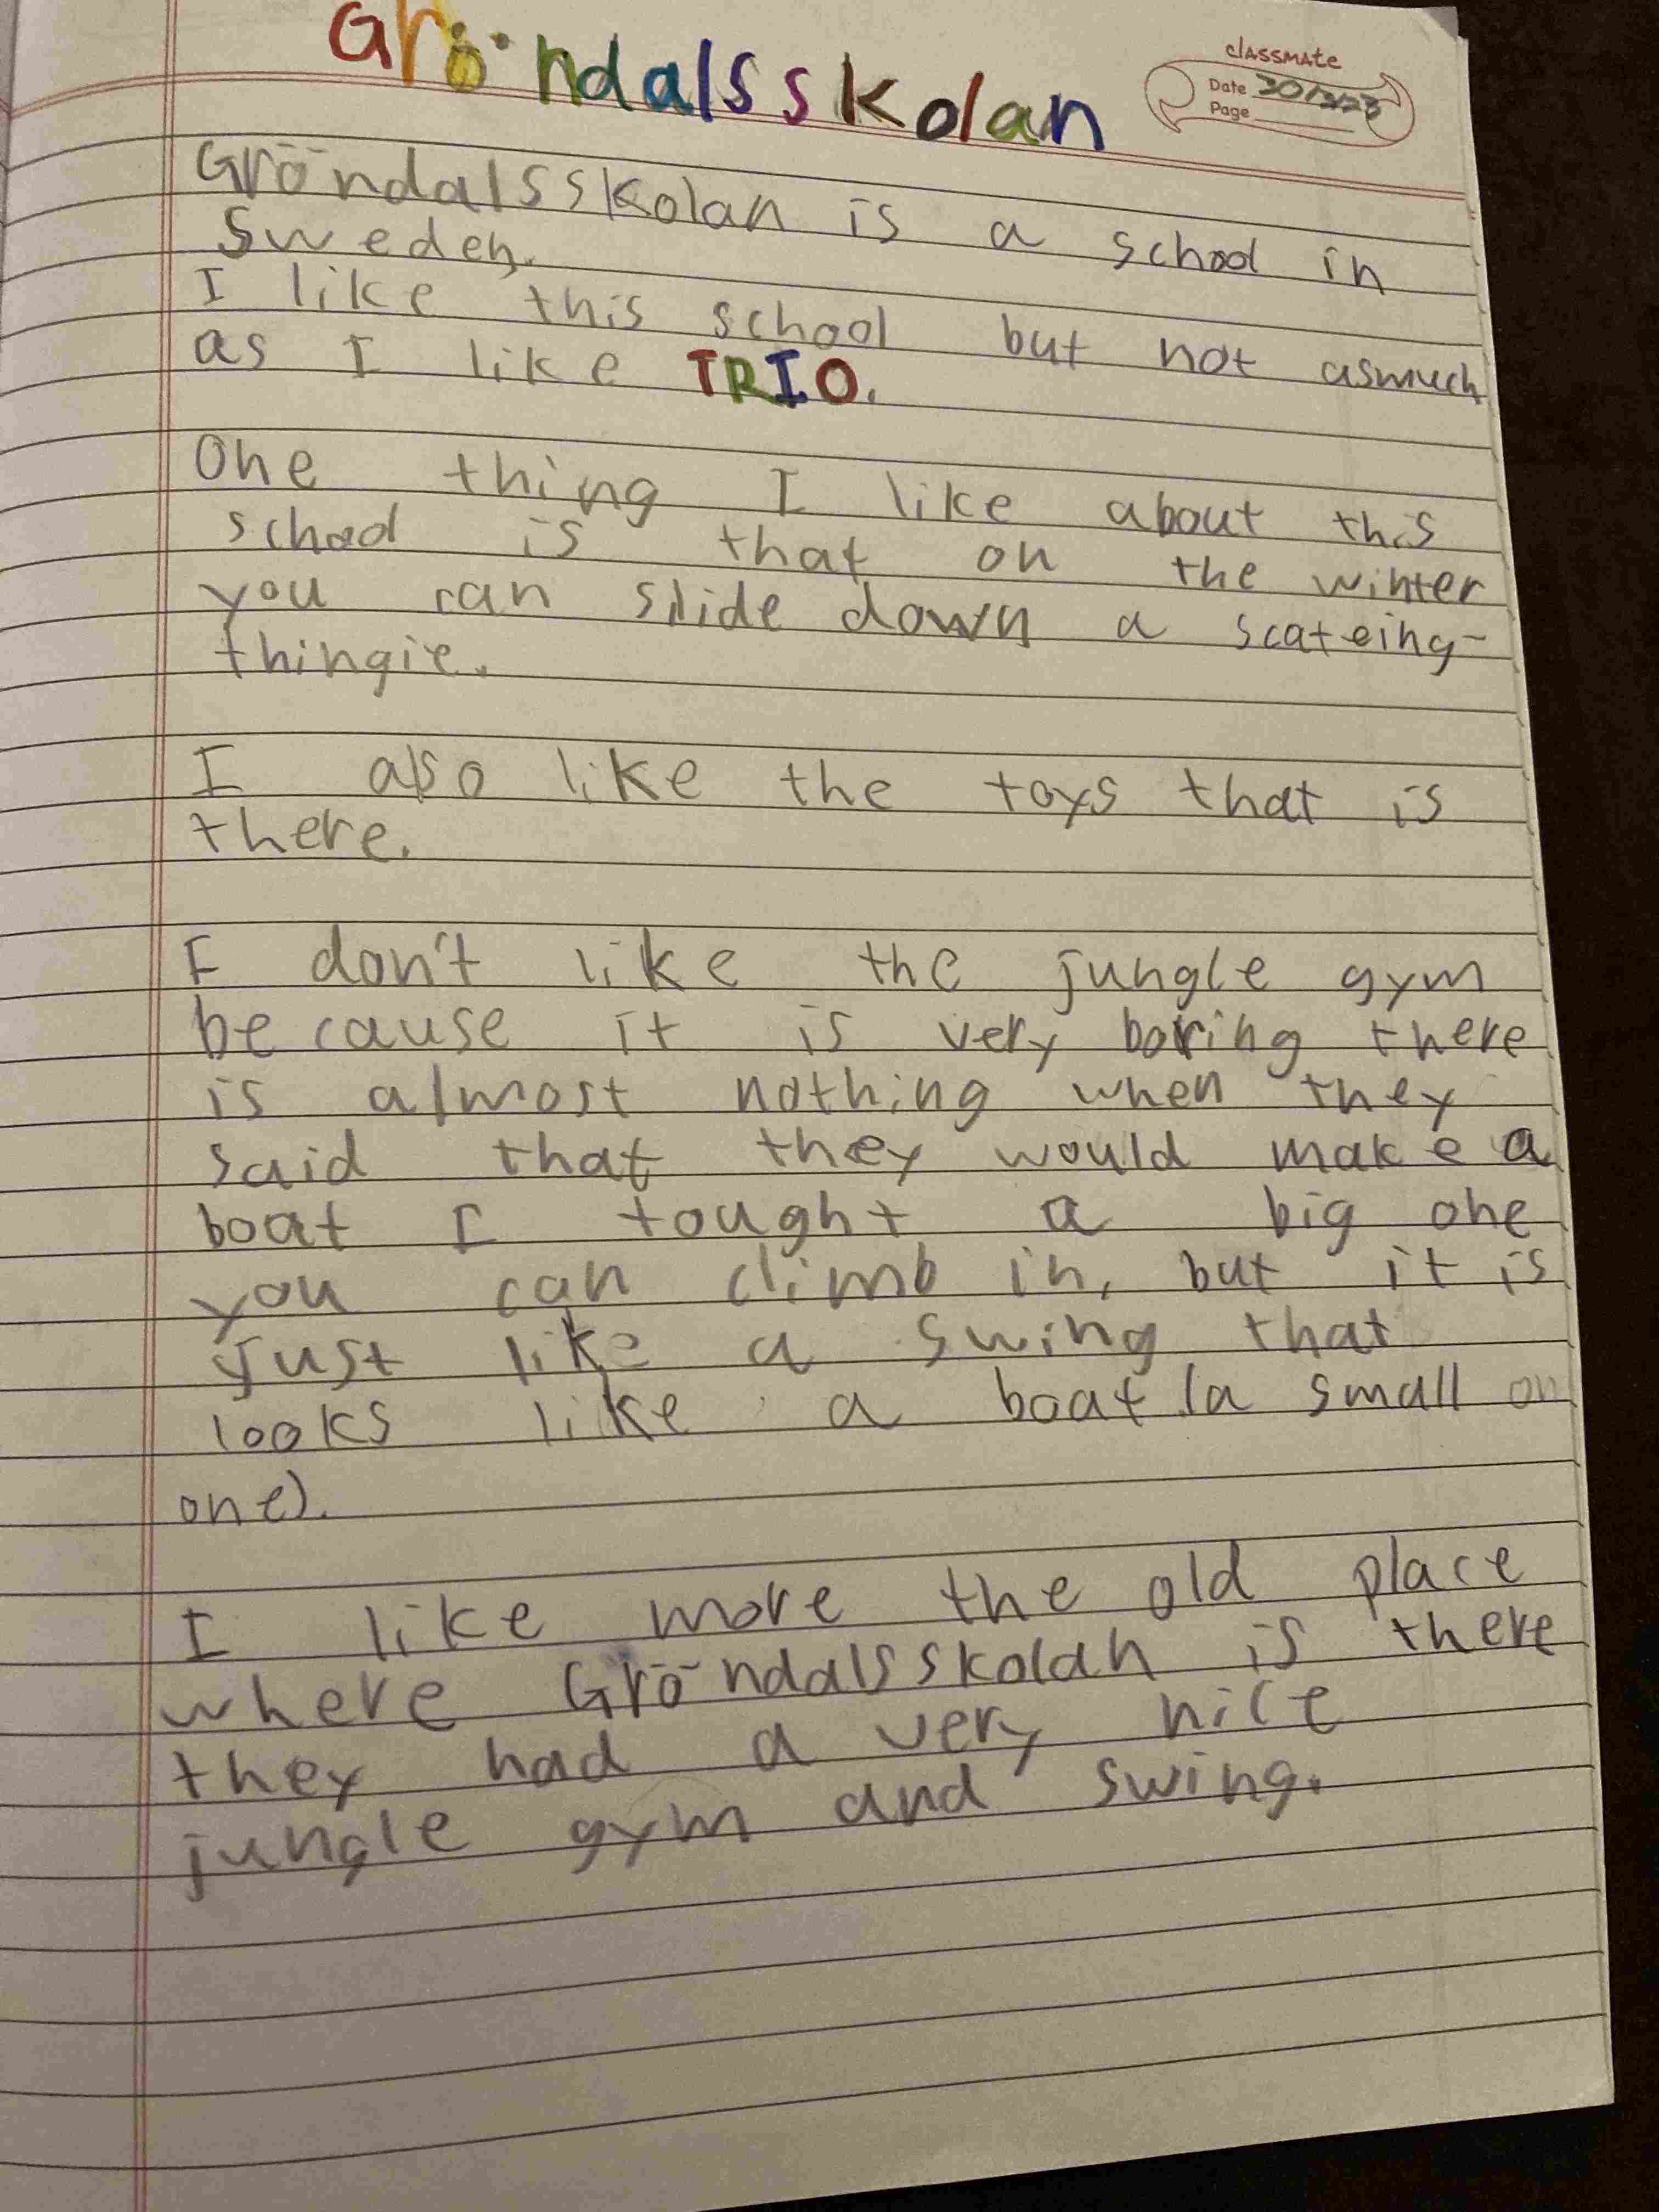 Gröndalsskolan
classmate
Date 30/12/23
Page
Gröndalsskolan is a school in
Sweden.
I like this school but not asmuch
as I like TRIO.
One thing I like about this
school is that on the winter
you can slide down a scateing-
thingie.
I also like the toys that is
there.
I don't like the jungle gym
because it is very boring there
is almost nothing when they
said that they would make a
boat I tought a big one
you can climb in, but it is
just like a swing that
looks like a boat (a small on
one).
I like more the old place
where Gröndalsskolan is there
they had a very nice
jungle gym and swing.